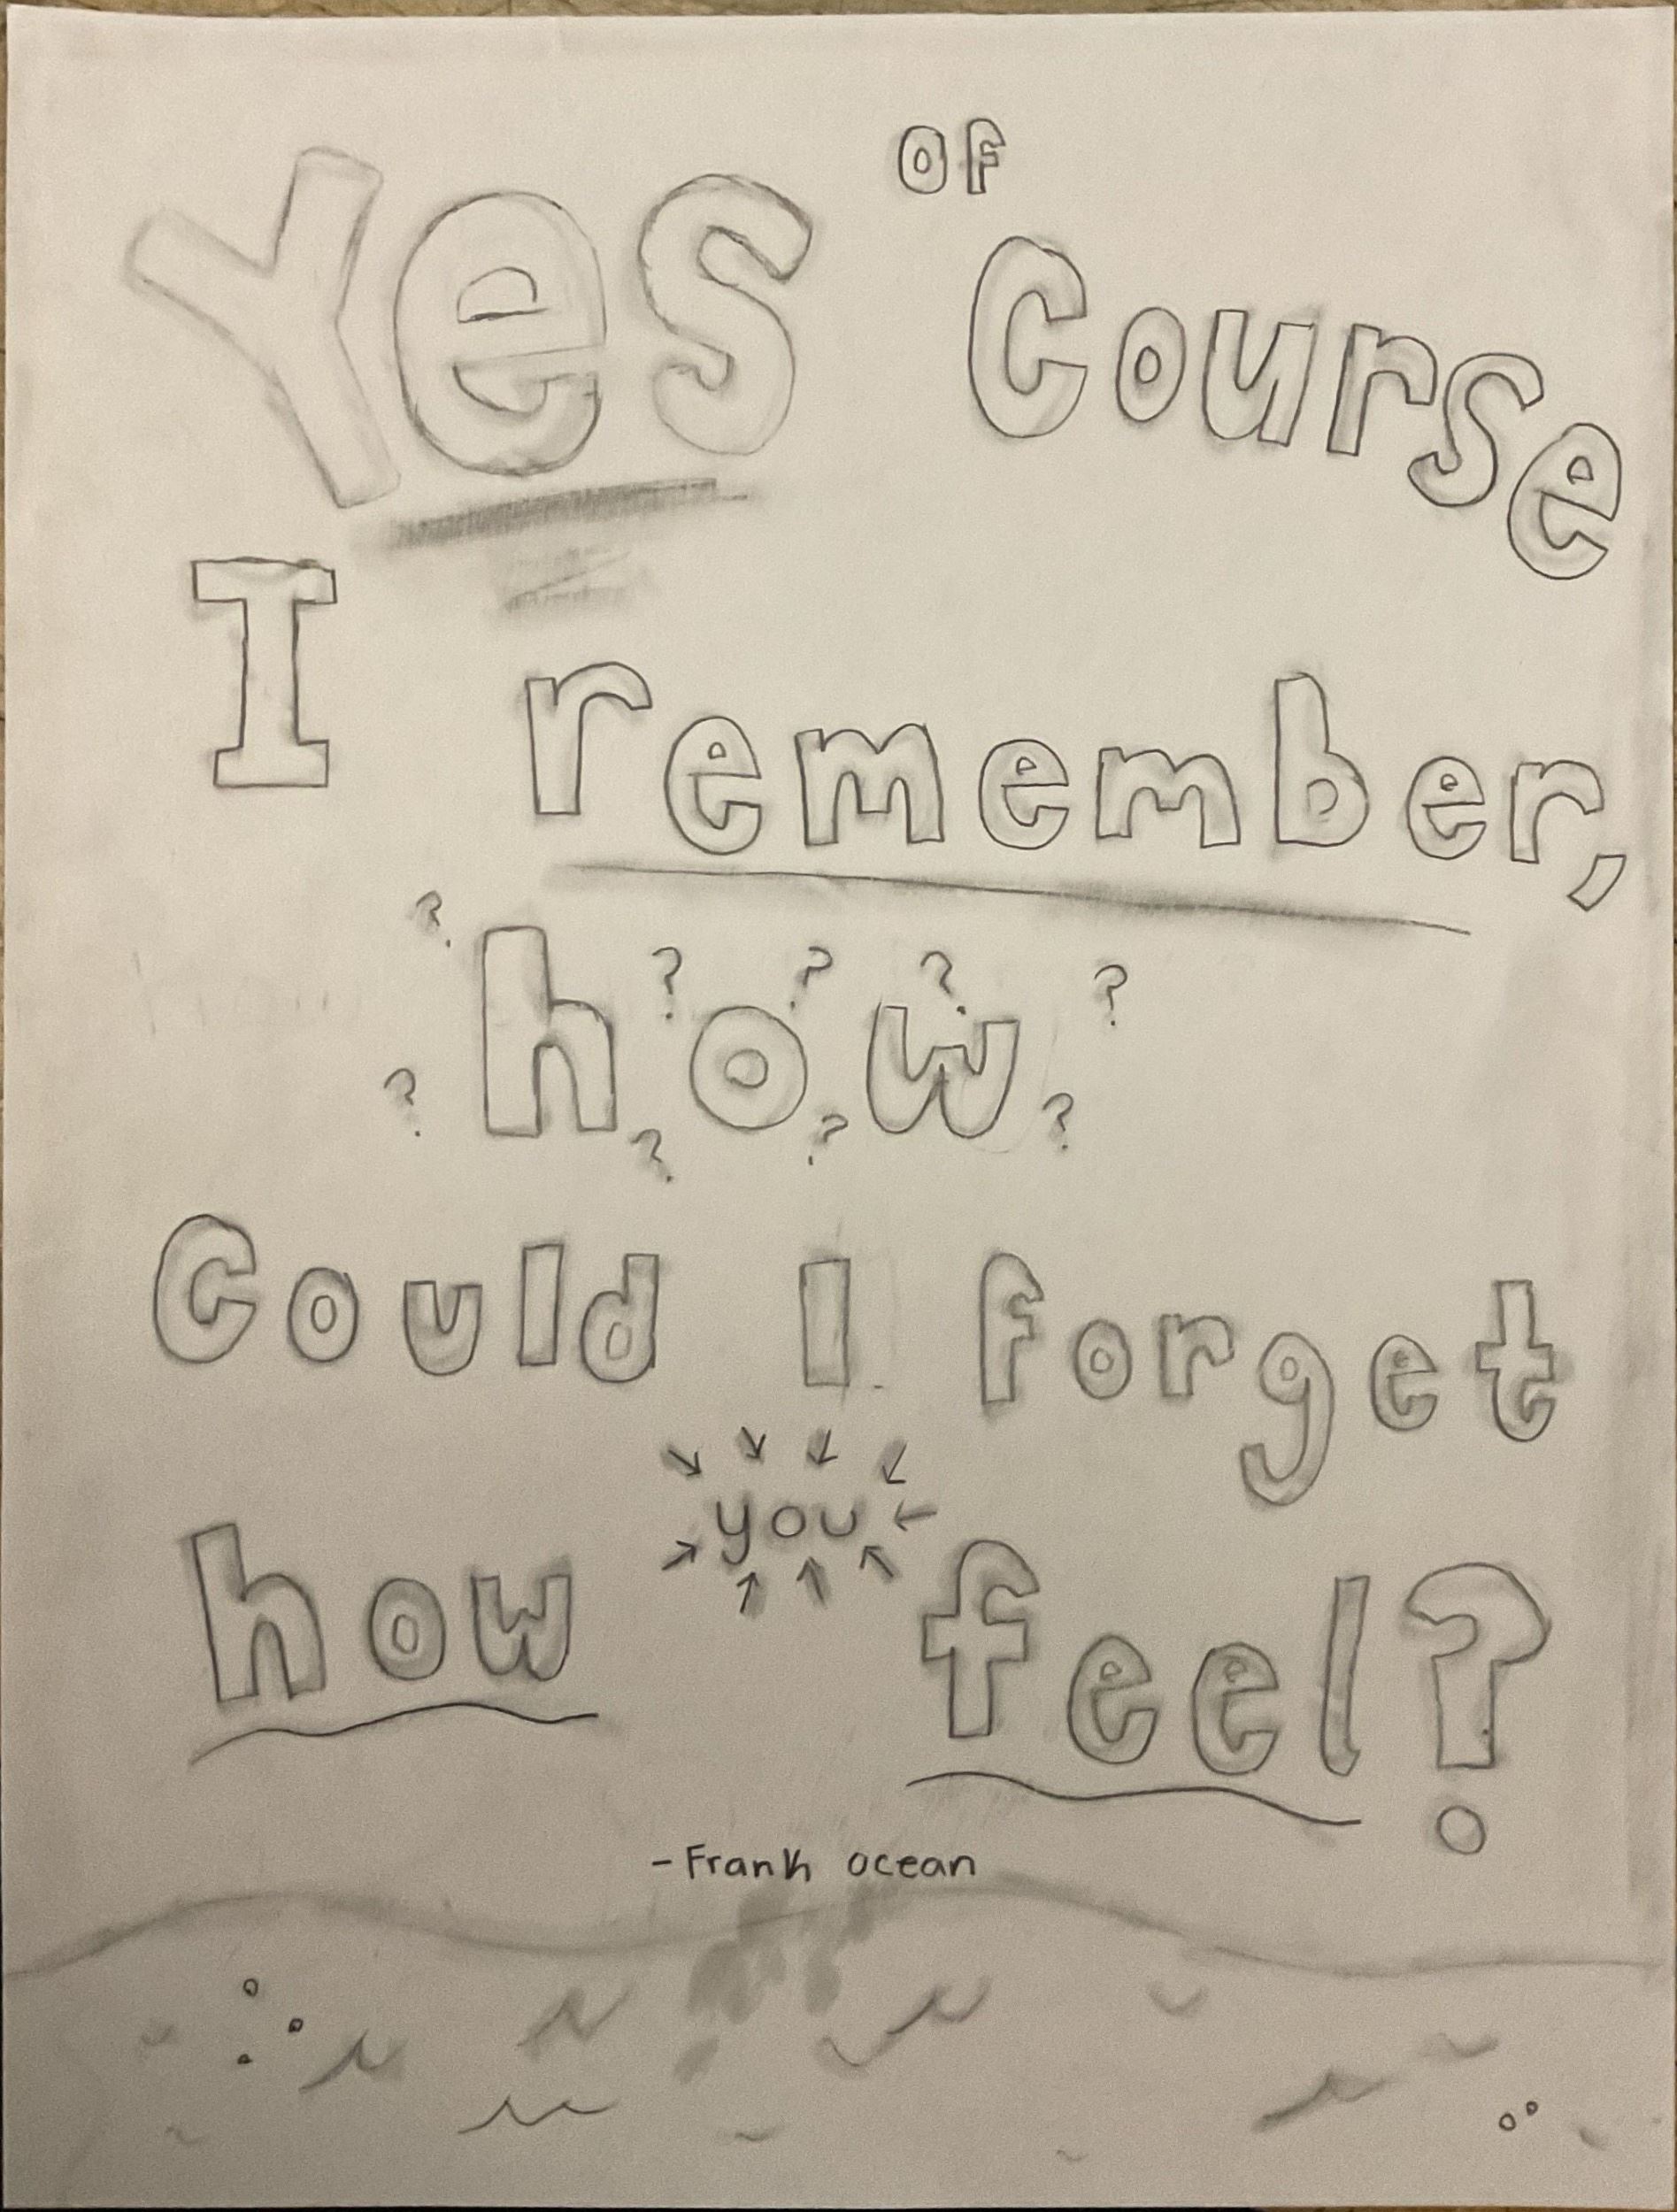 Yes OF Course
I remember,
? ? ? ? ?
how
? ? ? ?
Could I forget
how you feel?
- Frank ocean